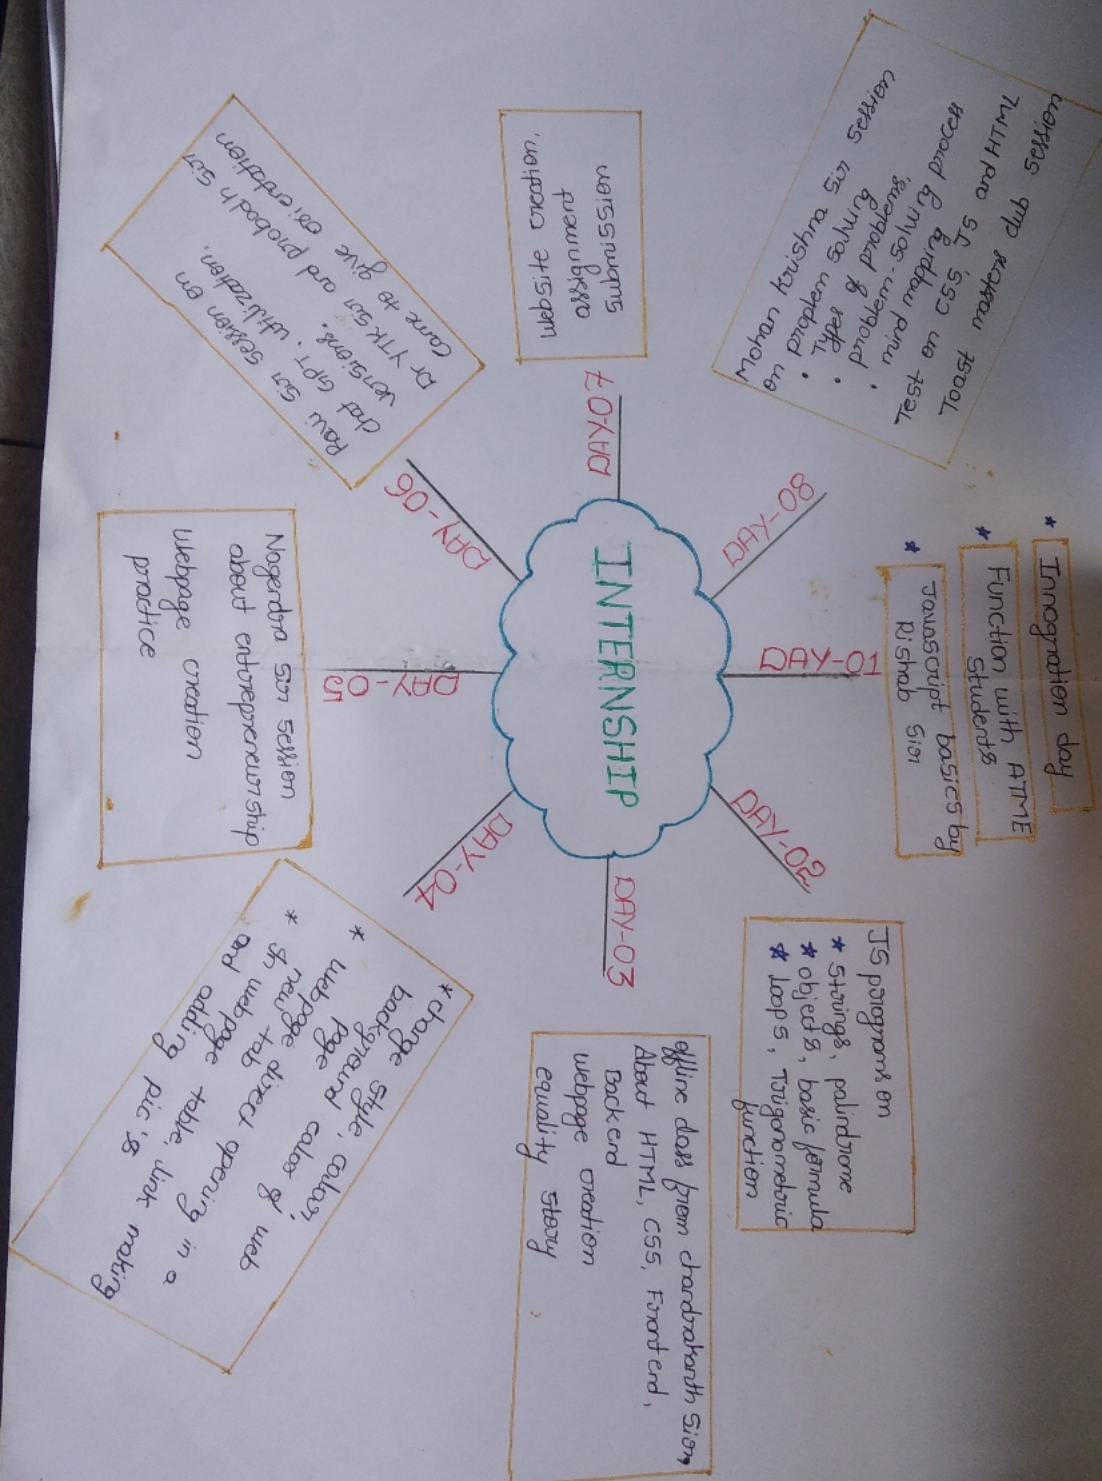 INTERNSHIP
DAY-01
* Innogration day
* Function with ATME
students
* Javascript basics by
Rishab Sir
DAY-02
JS programs on
* Strings, palindrome
* objects, basic formula
* loops, Trigonometric
function
DAY-03
offline class from chandrakanth Sir,
About HTML, CSS, Frontend,
Backend
webpage creation
equality story
DAY-04
* change style, color,
background color of web
page
* webpage direct opening in a
new tab
* In webpage table, link making
and adding pic's
DAY-05
Nagendra Sir session
about entrepreneurship
webpage creation
practice
DAY-06
Ravi Sir session on
chat GPT. utilization.
versions.
Dr YTK Sir and probodh Sir
came to give orientation
DAY-07
website creation.
assignment
submission
DAY-08
Mohan Krishna Sir Session
on proplem solving
• Types of problems,
• problem-solving process
• mind mapping
Test on CSS, JS and HTML
Toast masters club session